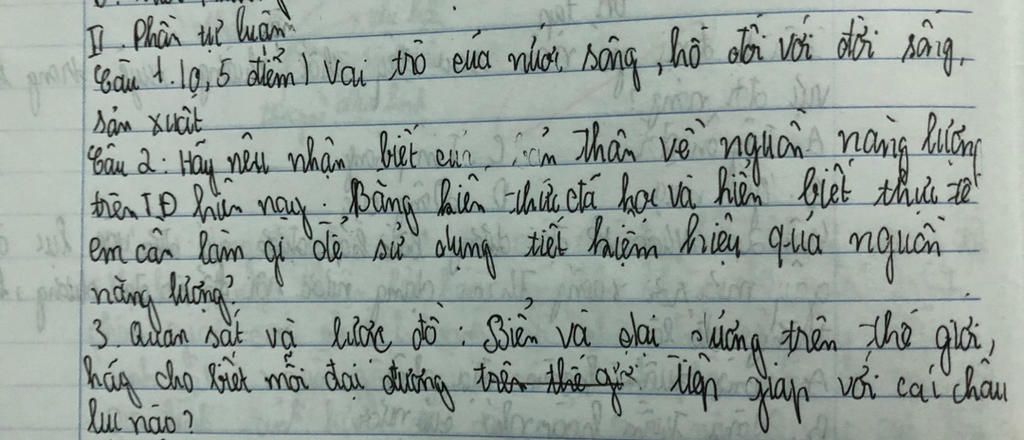 II. Phần tự luận
Câu 1. (0,5 điểm) Vai trò của nước sông, hồ đối với đời sống,
sản xuất
Câu 2: Hãy nêu nhận biết của bản thân về nguồn năng lượng
trên TĐ hiện nay. Bằng kiến thức đã học và hiển biết thực tế
em cần làm gì để sử dụng tiết kiệm hiệu quả nguồn
năng lượng?
3. Quan sát và lược đồ: Biển và đại dương trên thế giới,
hãy cho biết mỗi đại dương trên thế giới tiếp giáp với cái châu
lục nào?